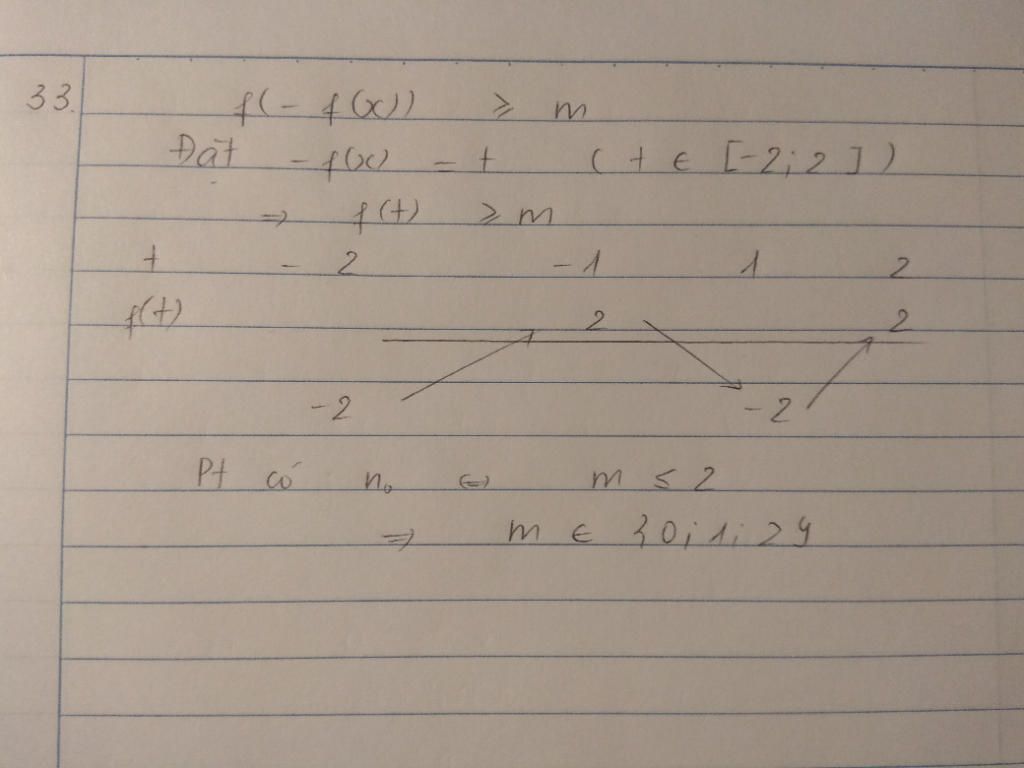 33. f(- f(x)) ≥ m
Đặt - f(x) = t ( t ∈ [-2; 2 ] )
⇒ f(t) ≥ m
t - 2 -1 1 2
f(t) 2 2
-2 -2
Pt có n₀ ⇔ m ≤ 2
⇒ m ∈ {0; 1; 2}